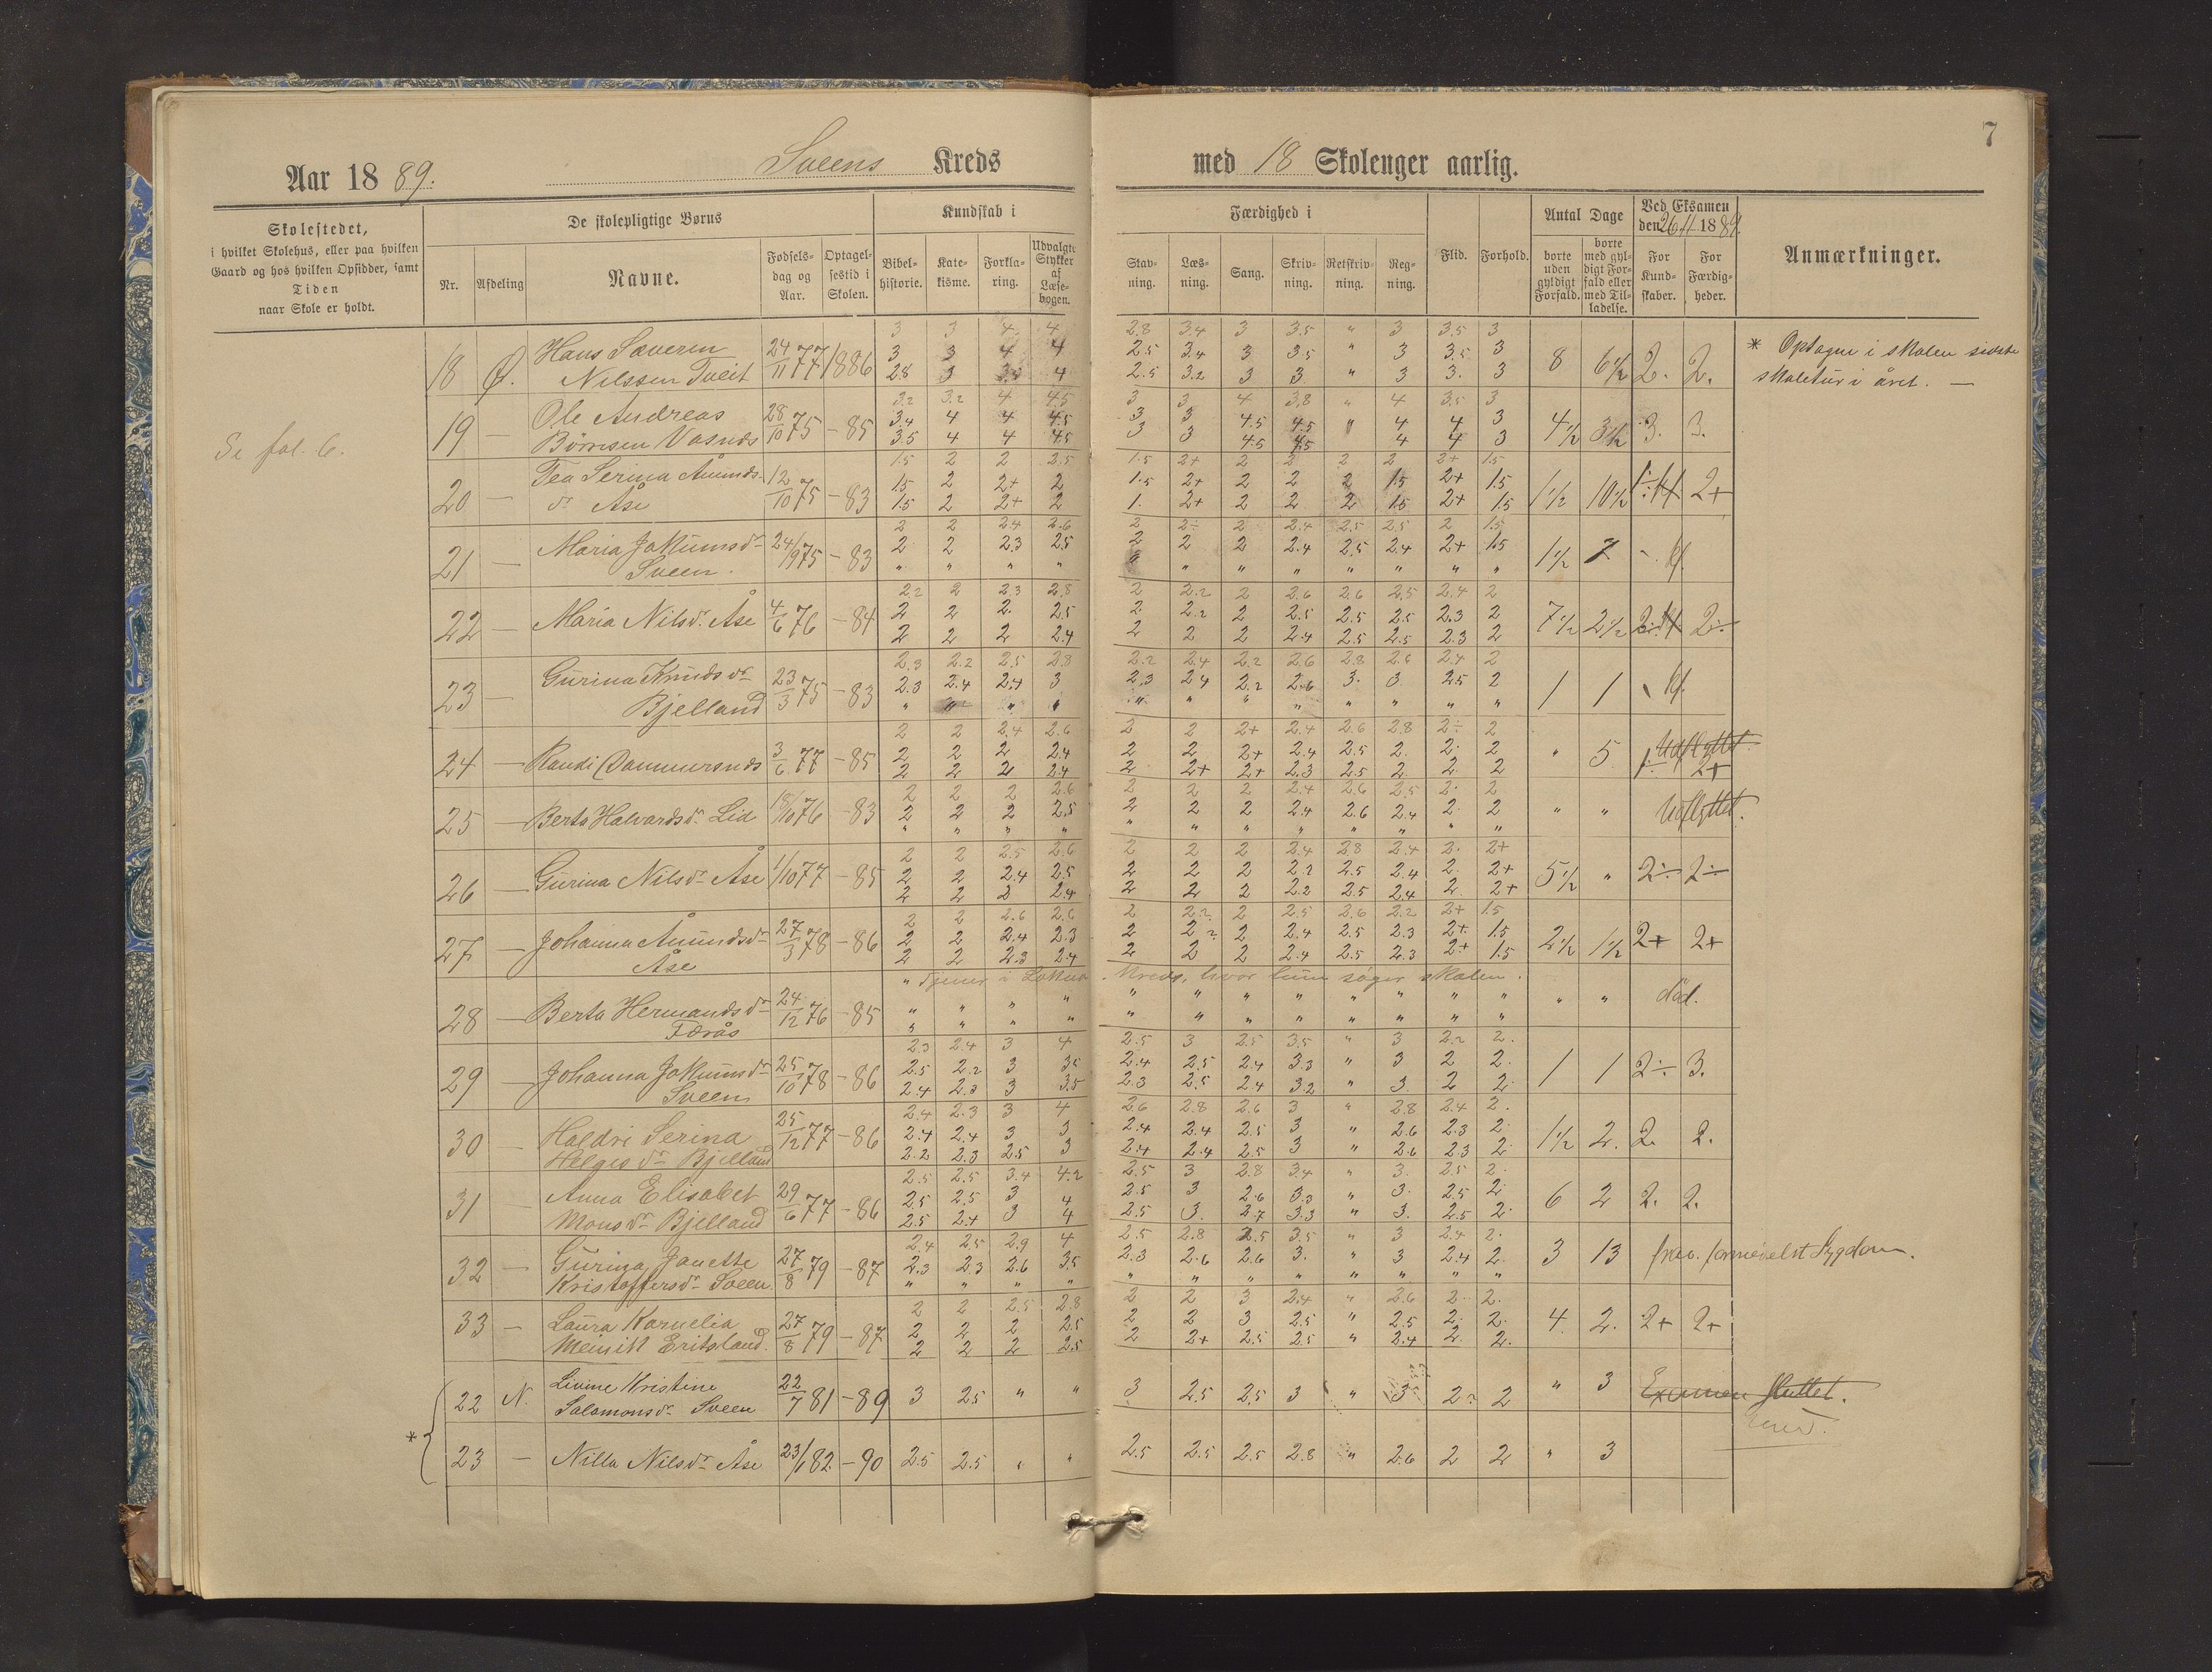 7
Aar 1889. Sveens Kreds med 18 Skolenger aarlig.
Skolestedet, i hvilket Skolehus, eller paa hvilken Gaard og hos hvilken Opsidder, samt Tiden naar Skole er holdt.
De skolepligtige Børns
Nr. Afdeling Navne. Fødselsdag og Aar. Optagelsestid i Skolen.
Kundskab i
Bibelhistorie. Katekisme. Forklaring. Udvalgte Stykker af Læsebogen.
Færdighed i
Stavning. Læsning. Sang. Skrivning. Retskrivning. Regning.
Flid. Forhold.
Antal Dage
borte uden gyldigt Forfald. borte med gyldigt Forfald eller med Tilladelse.
Ved Eksamen den 26/11 1889.
For Kundskaber. For Færdigheder.
Anmærkninger.
Se fol. 6.
3 3 4 4 2.8 3.4 3 3.5 " 3 3.5 3
18 Ø. Hans Severin 24/11 77 1886 3 3 4 4 2.5 3.4 3 3.5 " 3 3.5 3 8 6 1/2 2. 2. * Optagne i skolen sidste
Nilssen Tveit 2.8 3 3.5 4 2.5 3.2 3 3 " 3 3. 3 skoletur i året. —
3.2 3.2 4 4.5 3 3 4 3.8 " 4 3.5 3
19 — Ole Andreas 28/10 75 - 85 3.4 4 4 4.5 3 3 4.5 4.5 " 4 4 3 4 1/2 3 1/2 3. 3.
Børresen Vasnds 3.5 4 4 4.5 3 3 4.5 4.5 4 4 3
1.5 2 2 2.5 1.5 2+ 2 2 2 2 2+ 1.5
20 — Tea Serina Åmunds- 12/10 75 - 83 1.5 2 2+ 2 1.5 2+ 2 2 2 1.5 2+ 1.5 1 1/2 10 1/2 2+
dr Åse 1.5 2 2+ 2 1. 2+ 2 2 2 1.5 2+ 1.5
2 2 2.4 2.6 2 2÷ 2 2.4 2.5 2.5 2 1.5
21 — Maria Jokumsdr 24/9 75 - 83 2 2 2.3 2.5 2 2 2 2.4 2.5 2.4 2+ 1.5 1 1/2 7
Sveen. " " " " " " " " " " " "
2.2 2 2.3 2.8 2 2.2 2 2.6 2.6 2.5 2.4 2
22 — Maria Nilsdr Åse 4/6 76 - 84 2 2 2. 2.5 2 2.2 2 2.5 2.5 2.5 2.3 2 7 1/2 2 1/2 2÷
2 2 2 2.4 2 2 2 2.4 2.5 2.5 2.3 2
2.3 2.2 2.5 2.8 2.2 2.4 2.2 2.6 2.8 2.6 2.4 2
23 — Gurina Knudsdr 23/3 75 - 83 2.3 2.4 2.4 3 2.3 2.4 2.2 2.6 3. 3 2.5 2 1 1
Bjelland " " " " " " " " " " " "
2 2 2.4 2.6 2 2 2+ 2.4 2.6 2.8 2÷ 2
24 — Randi Danmersnds 3/6 77 - 85 2 2 2 2.4 2 2 2+ 2.4 2.5 2. 2. 2 " 5 Udflyttet
2 2 2 2.4 2 2+ 2+ 2.3 2.5 2 2 2 1÷ 2+
2 2 2 2.6 2 2 2 2.4 2.6 2.5 2. 2
25 — Berta Halvardsdr Lid 18/10 76 - 83 2 2 2 2.5 2 2 2 2.4 2.6 2.4 2. 2 " " Udflyttet.
" " " " " " " " " " " "
2 2 2.5 2.6 2 2 2 2.4 2.8 2.4 2. 2+
26 — Gurina Nilsdr Åse 1/10 77 - 85 2 2 2.4 2.5 2 2 2 2.2 2.5 2.4 2. 2+ 5 1/2 " 2÷ 2÷
2 2 2 2.4 2 2 2 2.2 2.5 2.4 2. 2+
2 2 2.6 2.6 2 2.2 2 2.5 2.6 2.2 2+ 1.5
27 — Johanna Åmundsdr 27/3 78 - 86 2 2 2.4 2.3 2 2.2 2 2.4 2.5 2.3 2+ 1.5 2 1/2 1 1/2 2+ 2+
Åse 2 2 2.3 2.4 2 2 2 2.4 2.5 2.3 2+ 1.5
" Tjener i Kreds, hvor hun søger skolen.
28 — Berta Hermandsdr 24/12 76 - 85 " " " " " " " " " " " " " " død.
Færås " " " " " " " " " " " "
2.3 2.4 3 4 2.5 3 2.5 3.5 " 3 2.2 2.
29 — Johanna Jokumsdr 25/10 78 - 86 2.5 2.2 3 3.5 2.4 2.5 2.4 3.3 " 3 2 2. 1 1 2÷ 3.
Sveen 2.4 2.3 3 3.5 2.3 2.5 2.4 3.2 " 3. 2 2.
2.4 2.3 3 4 2.6 2.8 2.6 3 " 2.8 2.4 2.
30 — Haldri Serina 25/12 77 - 86 2.4 2.4 3 3 2.4 2.4 2.5 3 " 2.6 2.3 2. 1 1/2 2. 2. 2.
Helgesdr Bjelland 2.2 2.3 2.5 3 2.4 2.4 2.5 3 " 2.6 2.3 2.
2.5 2.5 3.4 4.2 2.5 3 2.8 3.4 " 3. 2.5 2.
31 — Anna Elisabet 29/6 77 - 86 2.5 2.5 3 4 2.5 3 2.6 3.3 " 3. 2.5 2. 6 2 2. 2.
Monsdr Bjelland 2.5 2.4 3 4 2.5 3. 2.7 3.3 " 3. 2.5 2.
2.4 2.5 2.9 4 2.5 2.8 2.5 3.5 " 3 2.4 2.
32 — Gurina Janette 27/8 79 - 87 2.3 2.3 2.6 3.5 2.3 2.6 2.6 3. " 3 2.4 2. 3 13 frav. formedelst Sygdom.
Kristoffersdr Sveen " " " " " " " " " " " "
2 2 2.5 2.8 2 2 3 2.4 " 2.6 2. 2.
33 — Laura Karnelia 27/8 79 - 87 2 2 2 2.5 2 2 3 2.5 " 2.5 2. 2. 4 2. 2+ 2+
Meinik Eritsland. 2 2 2 2.5 2 2+ 2.5 2.5 " 2.4 2. 2.
22 N. Livine Kristine 22/7 81 - 89 3 2.5 " " 3 2.5 2.5 3 " 3 2 2 " 3 Examen sluttet.
Salamonsdr Sveen
*
23 — Nilla Nilsdr Åse 23/1 82 - 90 2.5 2.5 " " 2.5 2.5 2.5 2.8 " 2.6 2 2 " 3